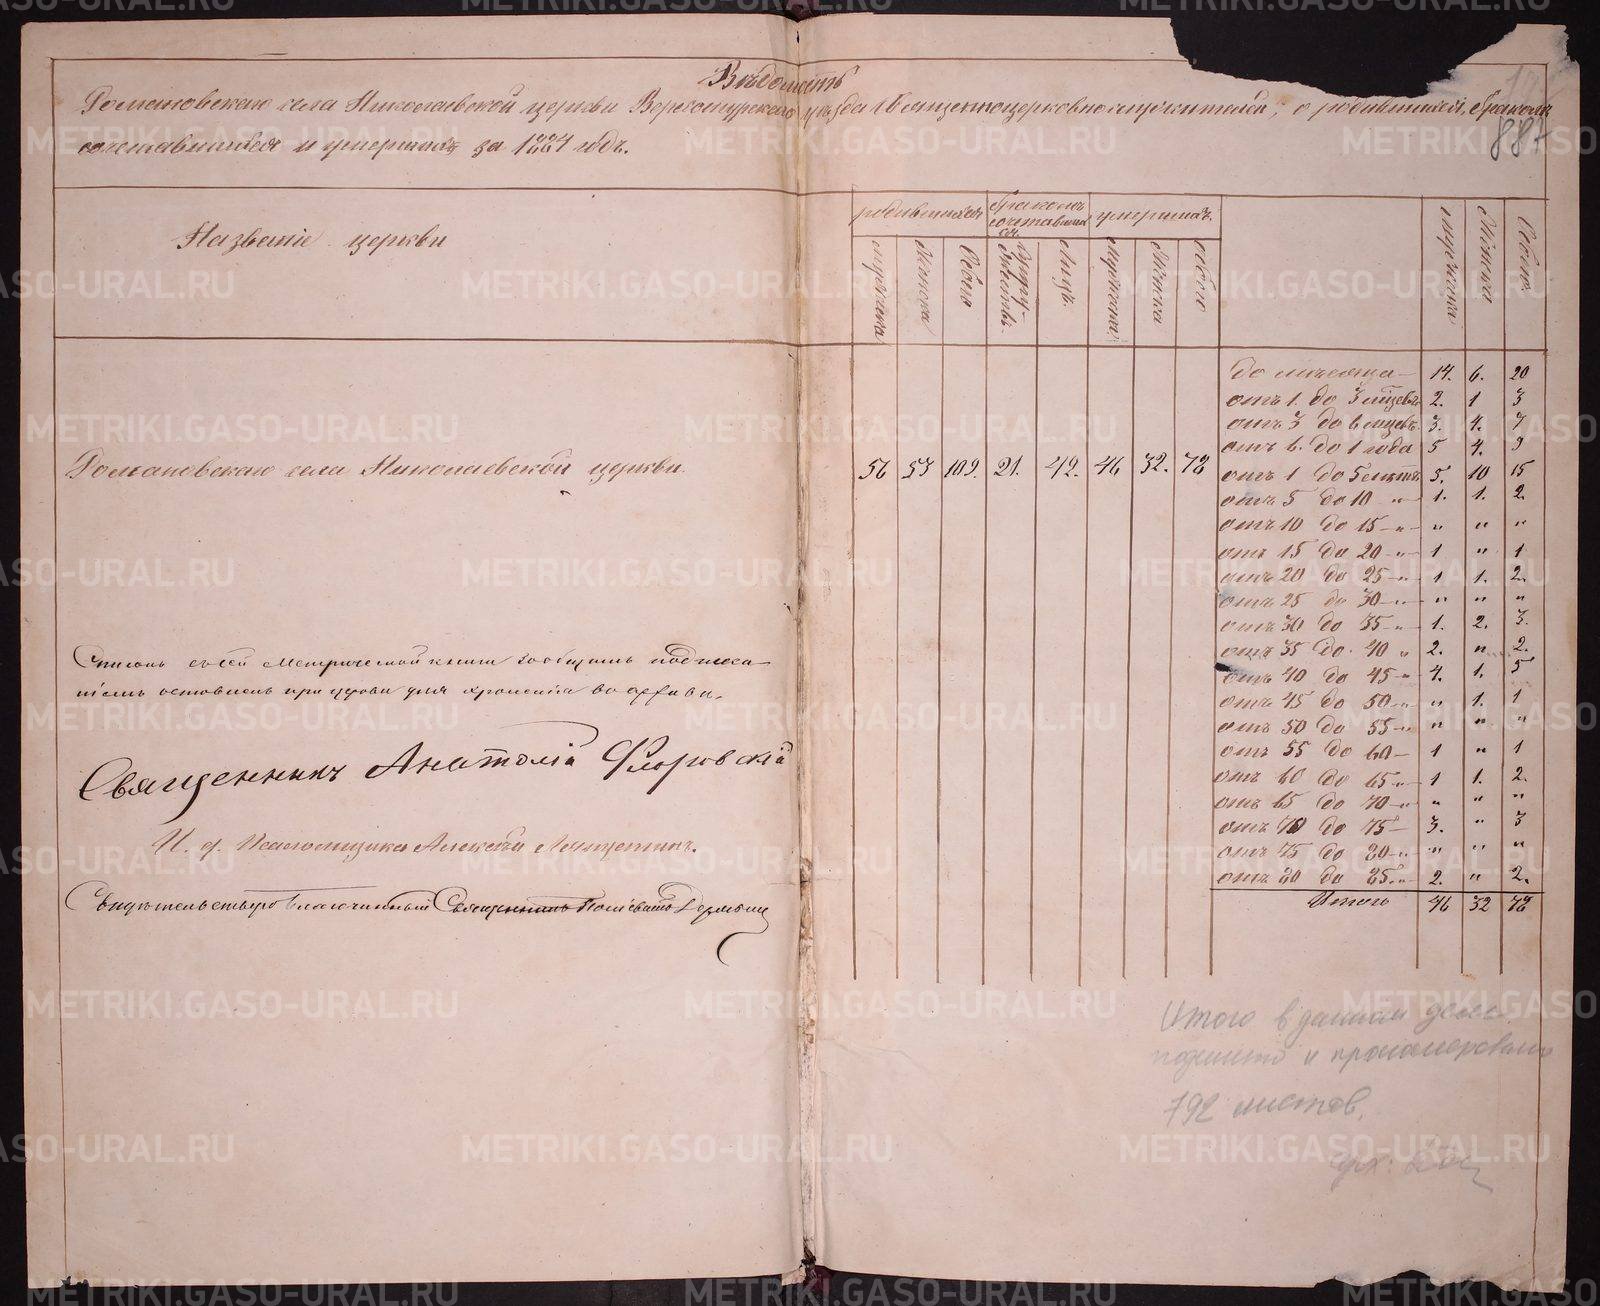 Вѣдомость
Романовскаго села Николаевской церкви Верхотурскаго уѣзда о родившихся, бракомъ
сочетавшихся и умершихъ за 1884 годъ.
887
Названіе церкви
родившихся
бракомъ сочетавшихся
умершихъ
мужеска
Женска
Обоего
Супружествъ
Лицъ
Мужеска
Женска
обоего
мужеска
Женска
Обоего
Романовскаго села Николаевской церкви. 56 53 109. 21. 42. 46 32. 78
до мѣсяца 14. 6. 20
отъ 1. до 3 мѣсец. 2. 1 3
отъ 3 до 6 мѣсец. 3. 4. 7
отъ 6. до 1 года 5 4. 9
отъ 1 до 5 лѣтъ 5. 10 15
отъ 5 до 10 -"- 1. 1. 2.
отъ 10 до 15 -"- " " "
отъ 15 до 20 -"- 1 " 1
отъ 20 до 25 -"- 1 1. 2.
отъ 25 до 30 -"- " " "
отъ 30 до 35 -"- 1. 2. 3.
отъ 35 до 40 " 2. " 2.
отъ 40 до 45 -" 4. 1. 5
отъ 45 до 50 -" " 1. 1
отъ 50 до 55 -" " " "
отъ 55 до 60 - 1 " 1
отъ 60 до 65 -" 1 1. 2.
отъ 65 до 70 -" " " "
отъ 70 до 75 - 3. " 3
отъ 75 до 80 -" " " "
отъ 80 до 85 " 2. " 2.
Итого 46 32 78
метрической книги
при церкви для храненія въ архивѣ.
Священникъ Анатолій Флоровскій
И. д. Псаломщика Алексѣй
Благочинный Священникъ
Итого в данном деле
подшито и пронумеровано
792 листов.
арх:
METRIKI.GASO-URAL.RU